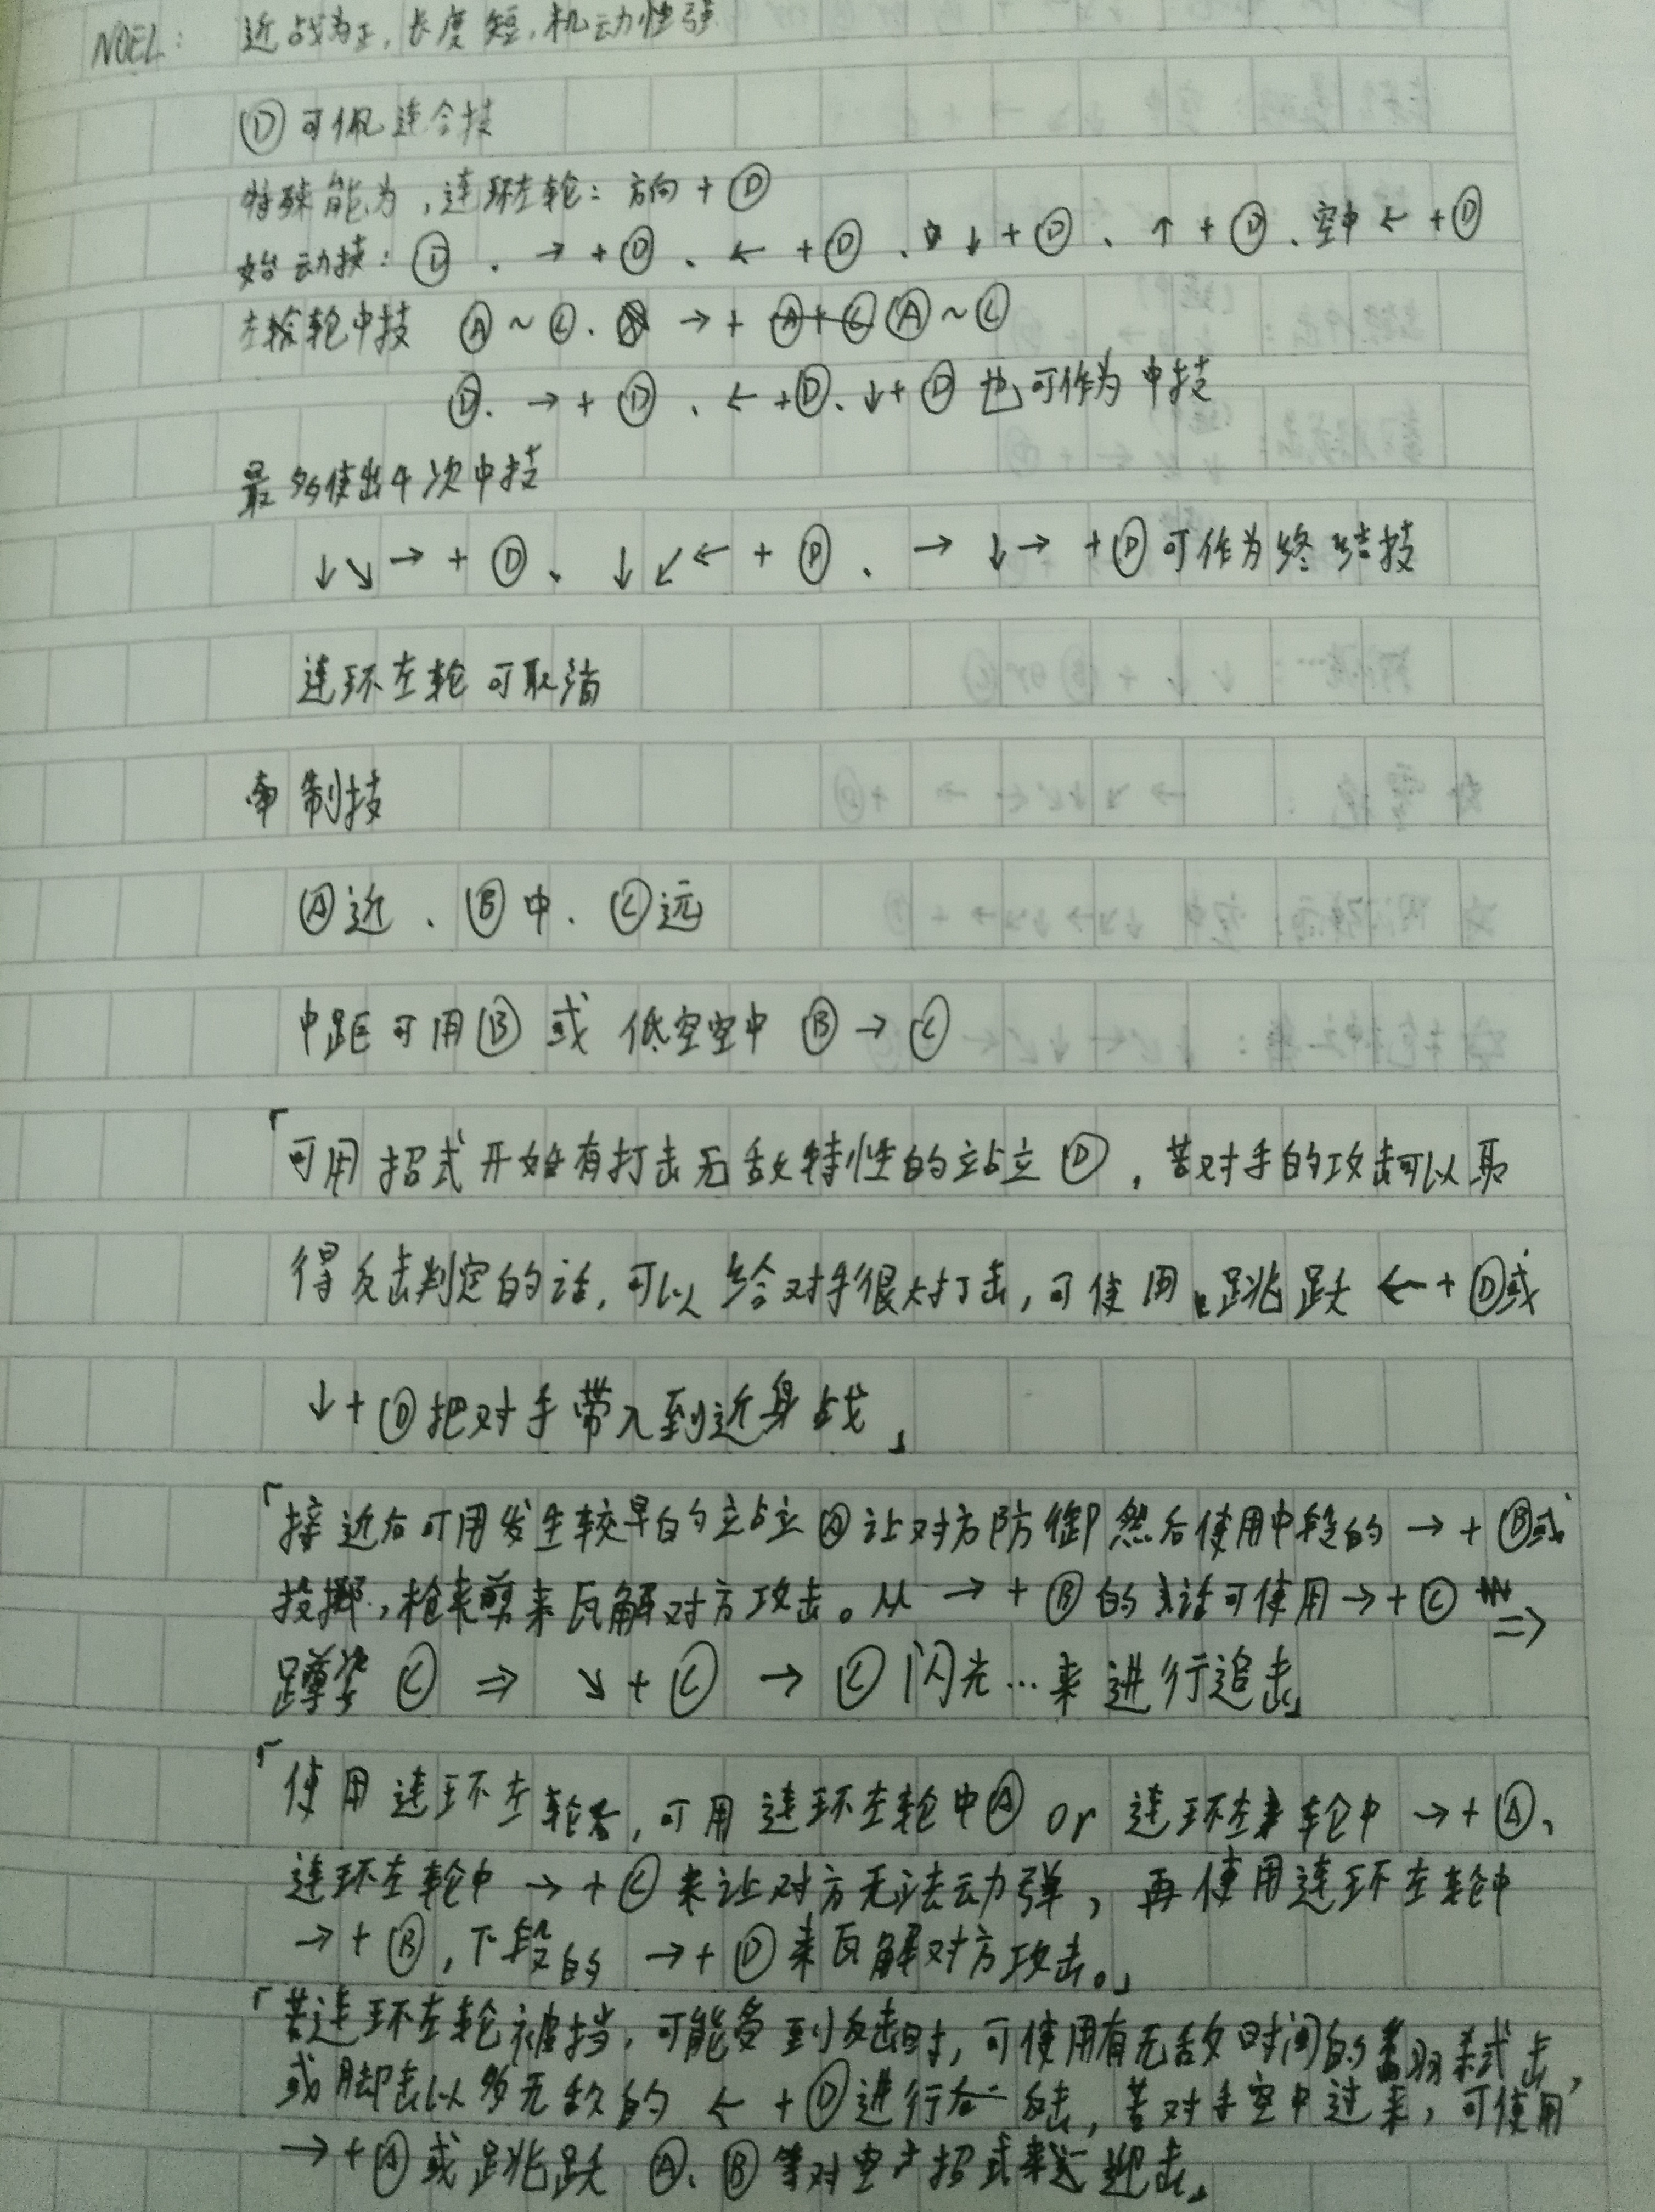 NOEL: 近战为正,长度短,机动性强
Ⓓ可佩连合技
特殊能为,连环左轮:方向+Ⓓ
始动技:Ⓓ、→+Ⓓ、←+Ⓓ、↓+Ⓓ、↑+Ⓓ、空中←+Ⓓ
左轮中技 Ⓐ~Ⓒ、→+Ⓐ~Ⓒ
Ⓓ、→+Ⓓ、←+Ⓓ、↓+Ⓓ也可作为中技
最多使出4次中技
↓↘→+Ⓓ、↓↙←+Ⓓ、→↓→+Ⓓ可作为终结技
连环左轮可取消
牵制技
Ⓐ近、Ⓑ中、Ⓒ远
中距可用Ⓑ或 低空空中Ⓑ→Ⓒ
「可用招式开始有打击无敌特性的站立Ⓓ,若对手的攻击可以取
得反击判定的话,可以给对手很大打击,可使用跳跃←+Ⓓ或
↓+Ⓓ把对手带入到近身战」
「接近后可用发生较早的站立Ⓐ让对方防御然后使用中段的→+Ⓑ或
投掷,枪来剪来瓦解对方攻击。从→+Ⓑ的话可使用→+Ⓒ⇒
蹲姿Ⓒ⇒↘+Ⓒ→Ⓒ闪光…来进行追击」
「使用连环左轮后,可用连环左轮中Ⓐ or 连环左轮中→+Ⓐ、
连环左轮中→+Ⓒ来让对方无法动弹,再使用连环左轮中
→+Ⓑ,下段的→+Ⓓ来瓦解对方攻击。」
「若连环左轮被挡,可能受到反击时,可使用有无敌时间的
或脚击以多无敌的←+Ⓓ进行反击,若对手空中过来,可使用
→+Ⓐ或跳跃Ⓐ、Ⓑ等对空招式来迎击。」